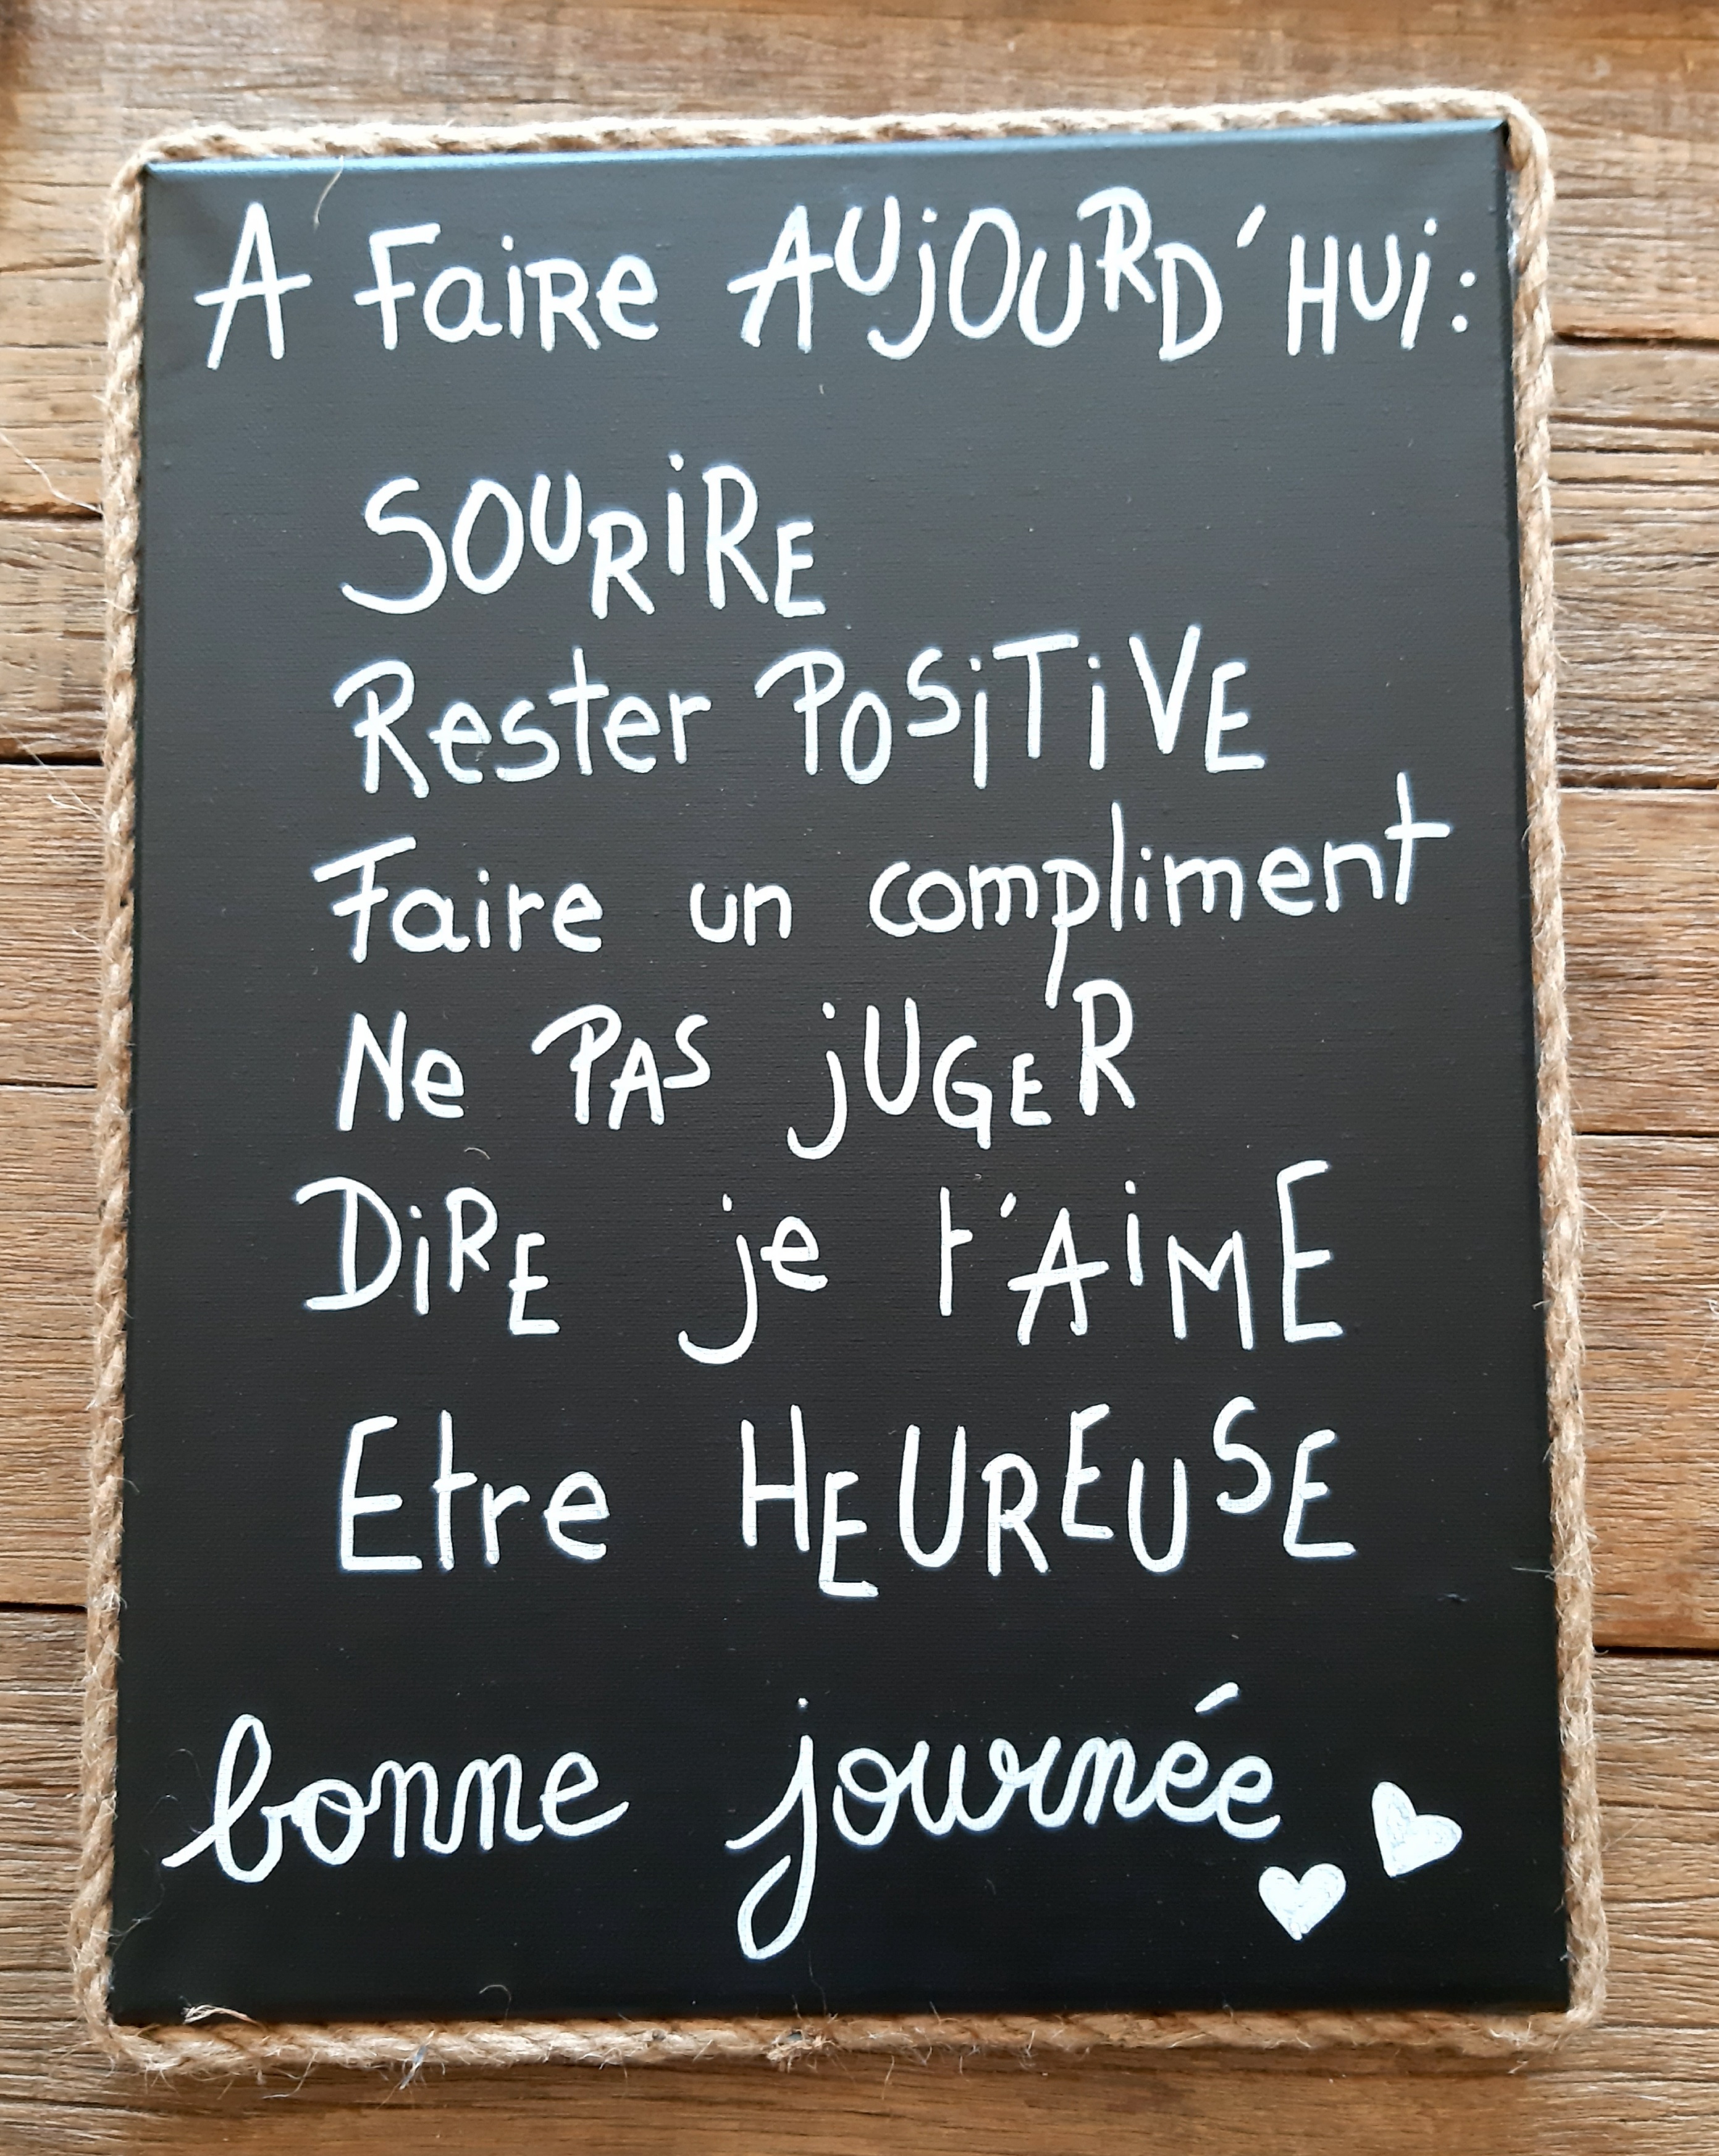 A Faire AUjOURD'HUi:
SOURiRE
Rester POSiTiVE
Faire un compliment
Ne PAS jUGER
DiRE je t'AiME
Etre HEUREUSE
bonne journée